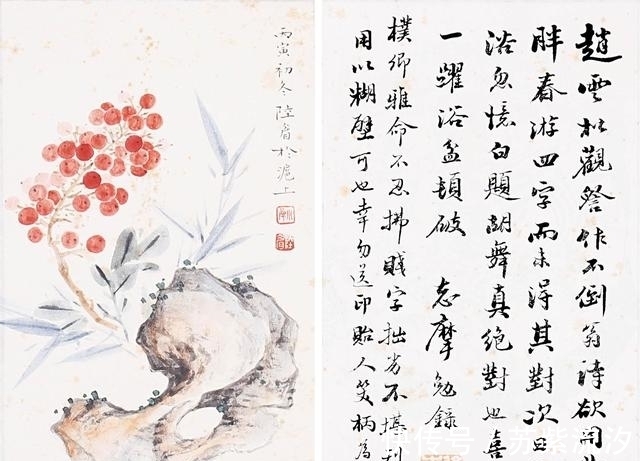 丙寅初冬陸眉於滬上
趙雲松觀詧作不倒翁詩欲
胖春游四字而未得其對次日
浴忽憶白題胡舞真絕對也喜
一躍浴盆頓破 志摩勉錄
樸卿雅命不忍拂賤字拙劣不堪刊
用以糊壁可也幸勿送印貽人笑柄爲